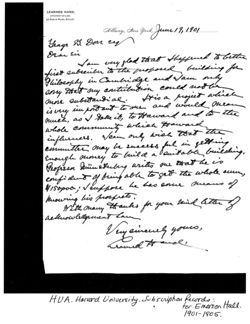 LEARNED HAND,
Albany, New York June 17, 1901
George B. Dorr esq
Dear Sir
I am very glad that I happened to be the
first subscriber to the proposed building for
Philosophy in Cambridge and I am only
sorry that my contribution could not be
more substantial. It is a project which
is very important to me and would mean
much, as I take it, to Harvard and to the
whole community which Harvard
influences. I can only wish that the
committee may be successful in getting
enough money to build a suitable building.
Professor Münsterberg writes me that he is
confident of being able to get the whole sum,
$150,000; I suppose he has some means of
knowing his prospects.
With many thanks for your kind letter of
acknowledgement I am
Very sincerely yours,
Learned Hand.
H.U.A. Harvard University. Subscription Records
for Emerson Hall.
1901-1905.